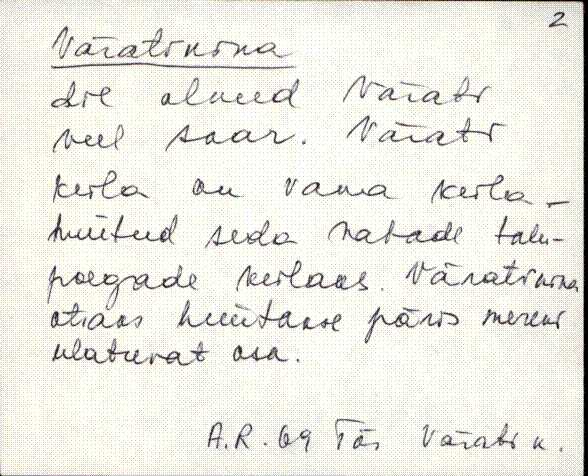 2
Väratinina
Siil olnud Värati
veel saar. Värati
küla on vana küla –
hüütud seda vabade talu-
poegade külaks. Väratinina
otsaks hüütakse päris mereni
ulatuvat osa.
A.R. 69 Pös Värati k.